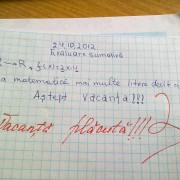 24.10.2012
Evaluare sumativă
R → R, f(x)=2x+1
a matematică mai multe litere decît ci
Aștept Vacanța!!!
Vacanță plăcută!!!
2